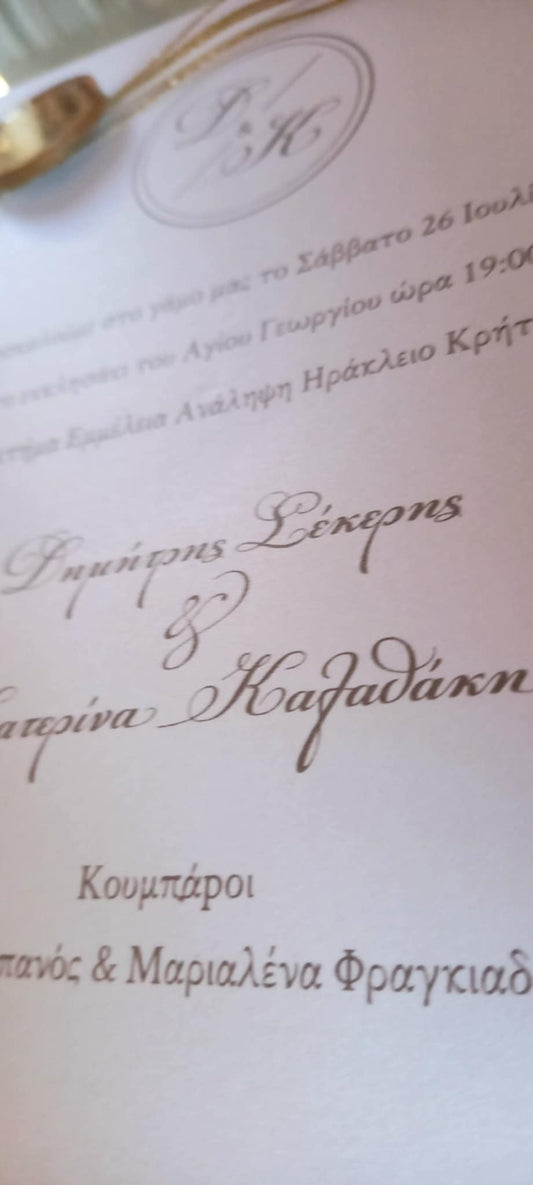 Δ & Κ
μας το Σάββατο 26 Ιουλί
του Αγίου Γεωργίου ώρα 19:00
Εμμέλεια Ανάληψη Ηράκλειο Κρήτ
Δημήτρης Σέκερης
&
ατερίνα Καζαθάκη
Κουμπάροι
πανός & Μαριαλένα Φραγκιαδ